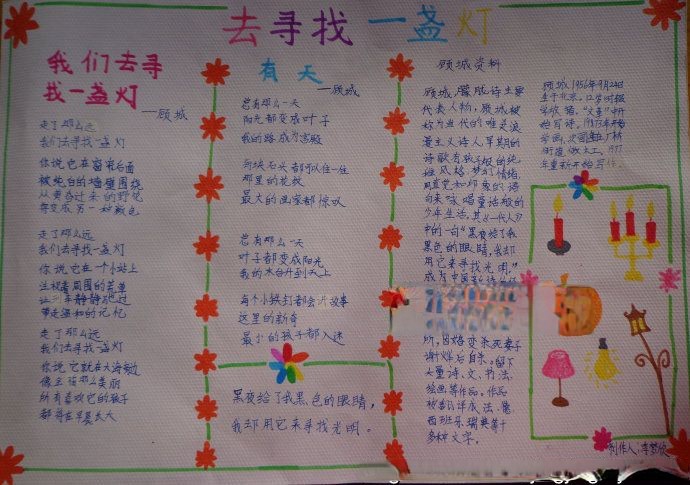 去寻找一盏灯
我们去寻
找一盏灯
——顾城
走了那么远
我们去寻找一盏灯
你说它在窗帘后面
被纯白的墙壁围绕
从黄昏迁来的野花
将变成另一种颜色
走了那么远
我们去寻找一盏灯
你说它在一个小站上
注视着周围的荒草
让列车静静驰过
带走温和的记忆
走了那么远
我们去寻找一盏灯
你说它就在大海旁边
像金桔那么美丽
所有喜欢它的孩子
都将在早晨长大
有天
——顾城
总有那么一天
阳光都变成叶子
我的路成为宫殿
每块石头都可以住一生
那里的花纹
最大的画家都惊叹
总有那么一天
叶子都变成阳光
我的木台升到天上
每个小铁钉都会讲故事
这里的新奇
最小的孩子都入迷
黑夜给了我黑色的眼睛,
我却用它来寻找光明。
顾城资料
顾城,朦胧诗主要
代表人物,顾城被
称为当代的唯灵浪
漫主义诗人,早期的
诗歌有孩子般的纯
稚风格、梦幻情绪,
用直觉和印象的诗
句来咏唱童话般的
少年生活。其《一代人》
中的一句“黑夜给了我
黑色的眼睛,我却
用它来寻找光明。”
成为中国新诗
所,因婚变杀死妻子
谢烨后自杀。留下
大量诗、文、书法、
绘画等作品。作品
被译成英、法、德、
西班牙、瑞典等十
多种文字。
顾城,1956年9月24日
生于北京。12岁时辍
学放猪。“文革”中开
始写诗。1973年开始
学画,
街道做木工。1977
年重新开始写作。
制作人:李梦欣